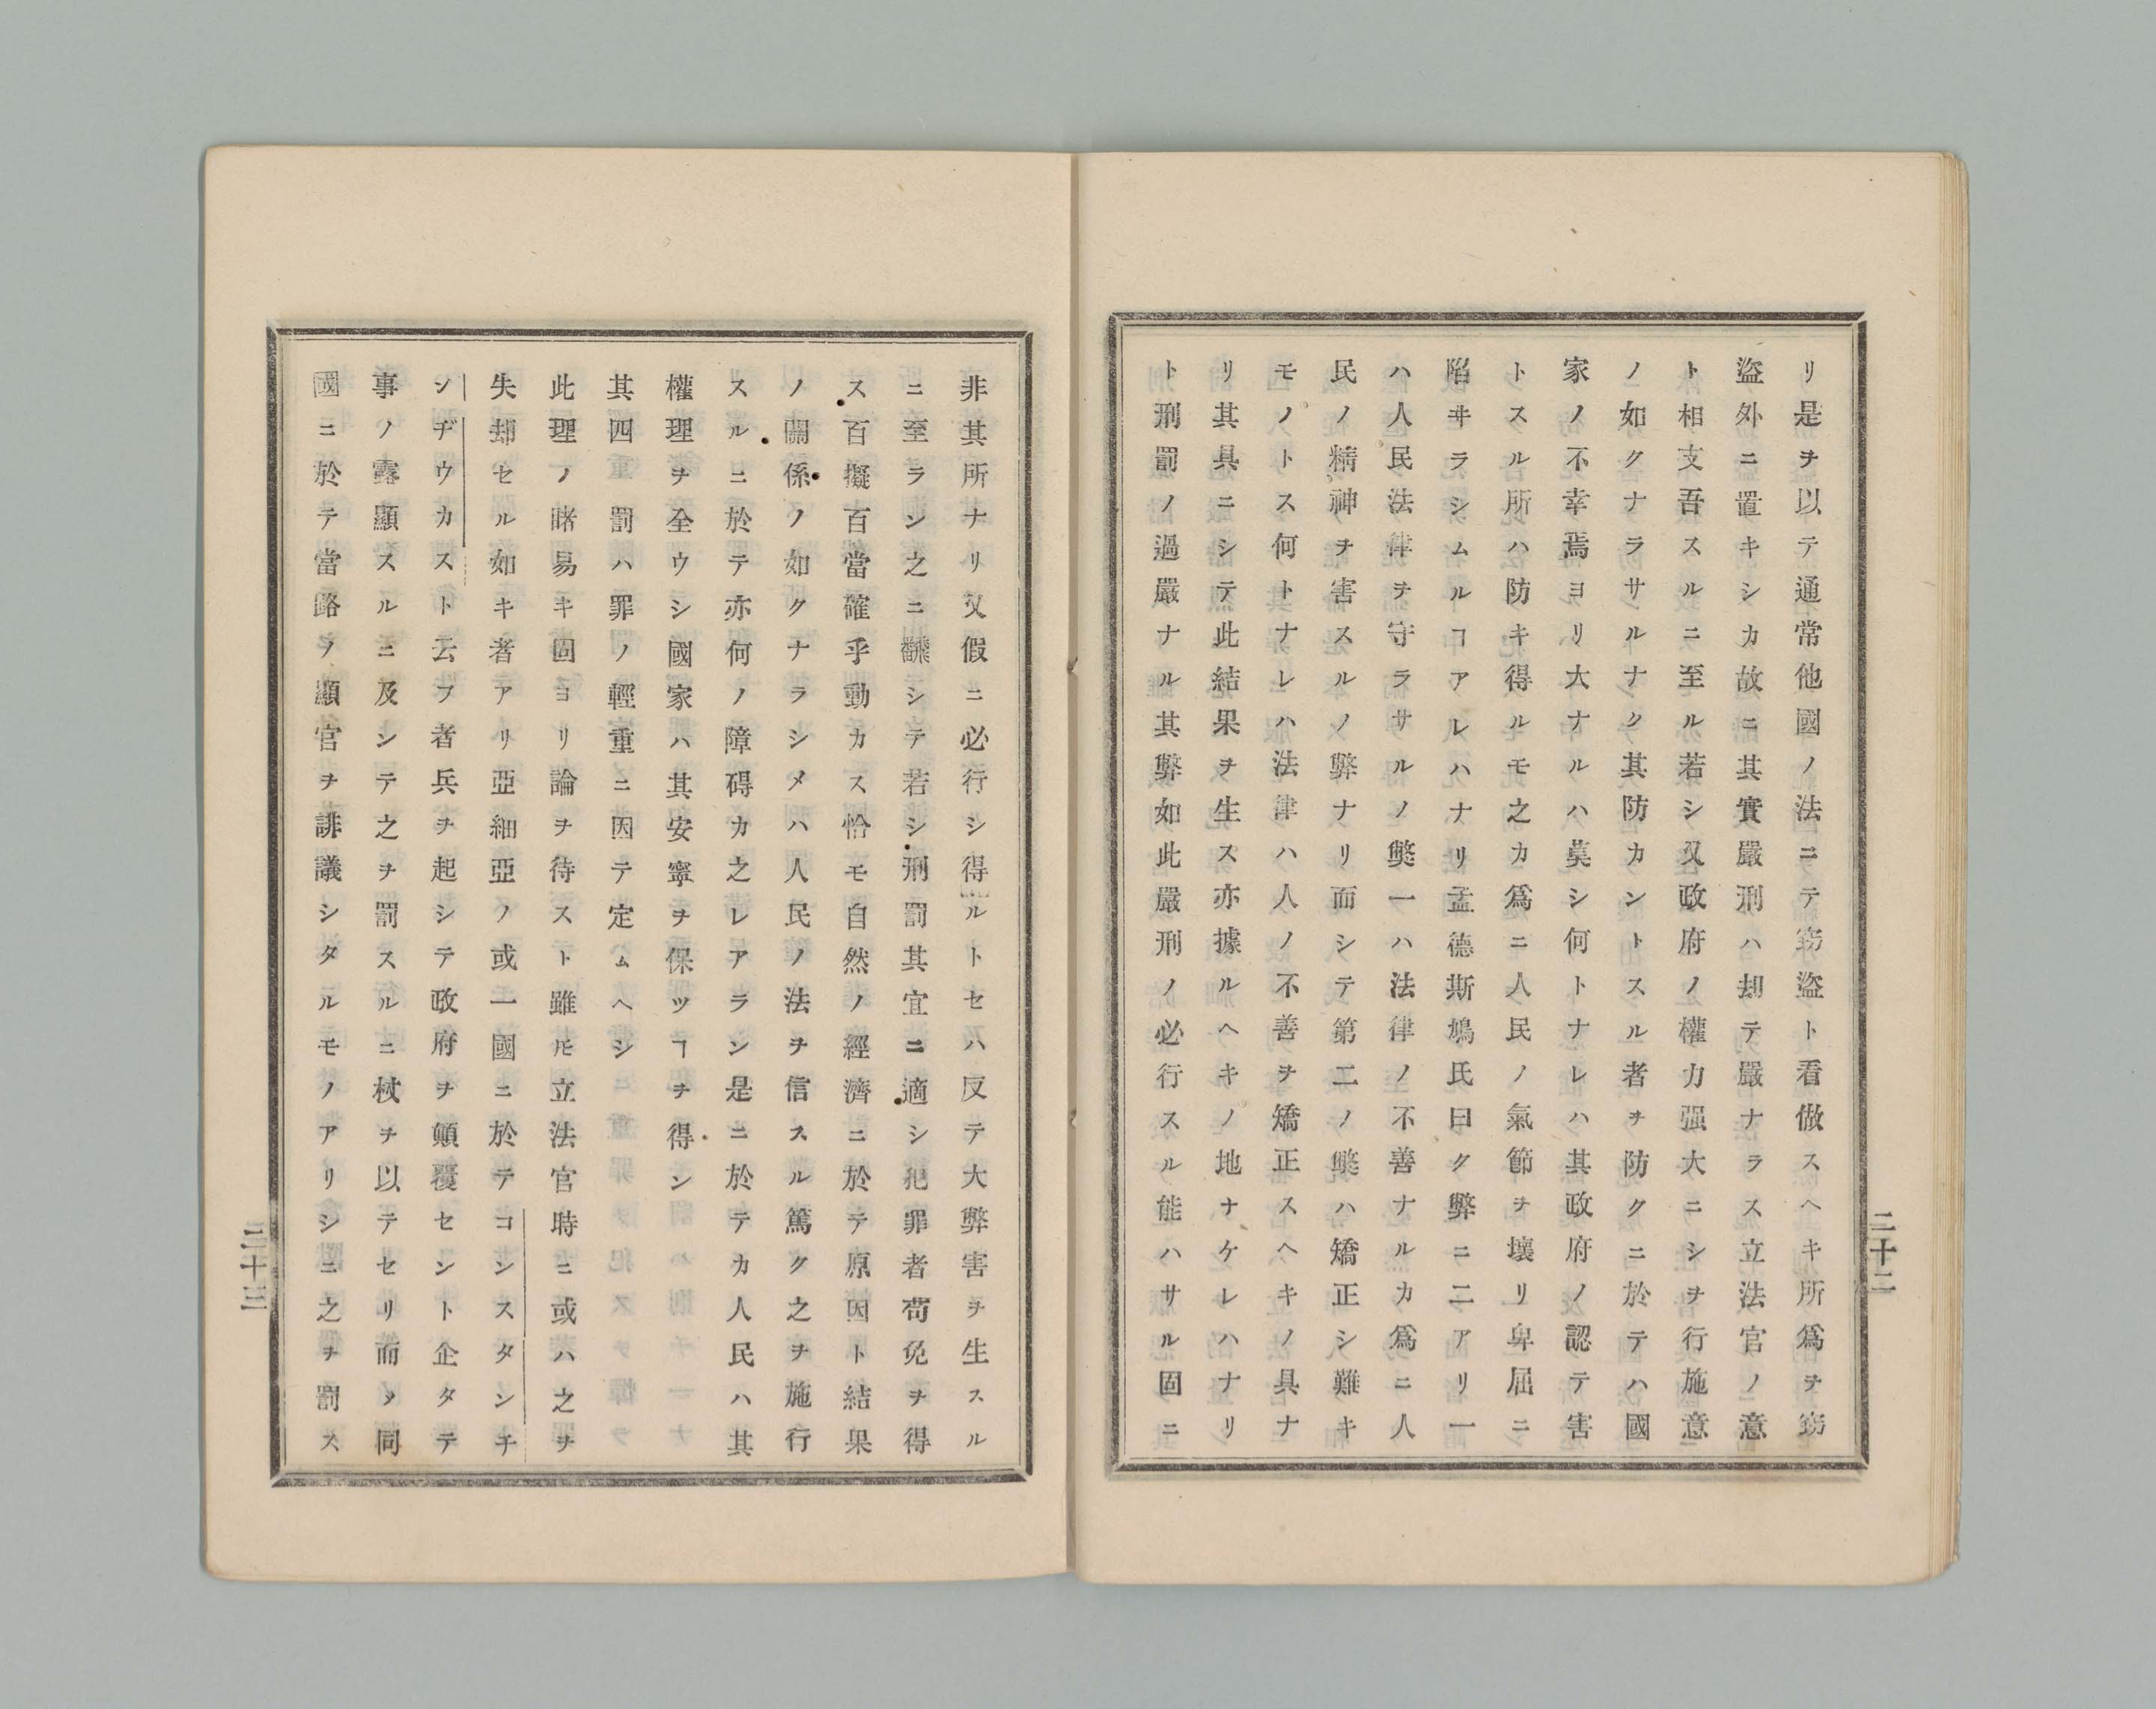 リ是ヲ以テ通常他國ノ法ニテ窃盜ト看做スヘキ所爲ヲ窃
盜外ニ置キシカ故ニ其實嚴刑ハ却テ嚴ナラス立法官ノ意
ト相支吾スルニ至ル若シ又政府ノ權力强大ニシヲ行施意
ノ如クナラサルナク其防カントスル者ヲ防クニ於テハ國
家ノ不幸焉ヨリ大ナルハ莫シ何トナレハ其政府ノ認テ害
トスル所ハ防キ得ルモ之カ爲ニ人民ノ氣節ヲ壞リ卑屈ニ
陷ヰラシムルヿアレハナリ孟德斯鳩氏曰ク弊ニ二アリ一
ハ人民法律ヲ守ラサルノ獘一ハ法律ノ不善ナルカ爲ニ人
民ノ精神ヲ害スルノ弊ナリ而シテ第二ノ獘ハ矯正シ難キ
モノトス何トナレハ法律ハ人ノ不善ヲ矯正スヘキノ具ナ
リ其具ニシテ此結果ヲ生ス亦據ルヘキノ地ナケレハナリ
ト刑罰ノ過嚴ナル其弊如此嚴刑ノ必行スル能ハサル固ニ
二十二
非其所ナリ又假ニ必行シ得ルトセハ反テ大弊害ヲ生スル
ニ至ラン之ニ飜シテ若シ刑罰其宜ニ適シ犯罪者苟免ヲ得
ス百擬百當確乎動カス恰モ自然ノ經濟ニ於テ原因ト結果
ノ關係ノ如クナラシメハ人民ノ法ヲ信スル篤ク之ヲ施行
スルニ於テ亦何ノ障碍カ之レアラン是ニ於テカ人民ハ其
權理ヲ全ウシ國家ハ其安寧ヲ保ツヿヲ得ン
其四重罰ハ罪ノ輕重ニ因テ定ムヘシ
此理ノ睹易キ固ヨリ論ヲ待スト雖𪜈立法官時ニ或ハ之ヲ
失却セル如キ者アリ亞細亞ノ或一國ニ於テコシスタンチ
ンヂウカスト云フ者兵ヲ起シテ政府ヲ顚覆セント企タテ
事ノ露顯スルニ及シテ之ヲ罰スルニ杖ヲ以テセリ而ヲ同
國ニ於テ當路ノ顯官ヲ誹議シタルモノアリシニ之ヲ罰ス
二十三